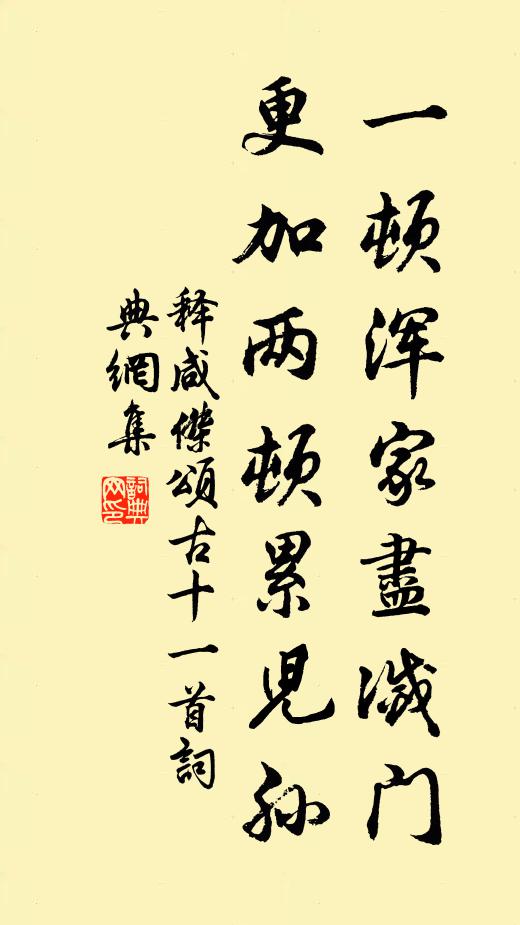 一頓浑家盡滅门
更加两頓累児孙
释咸傑頌古十一首詞
典網集
詞典
网印